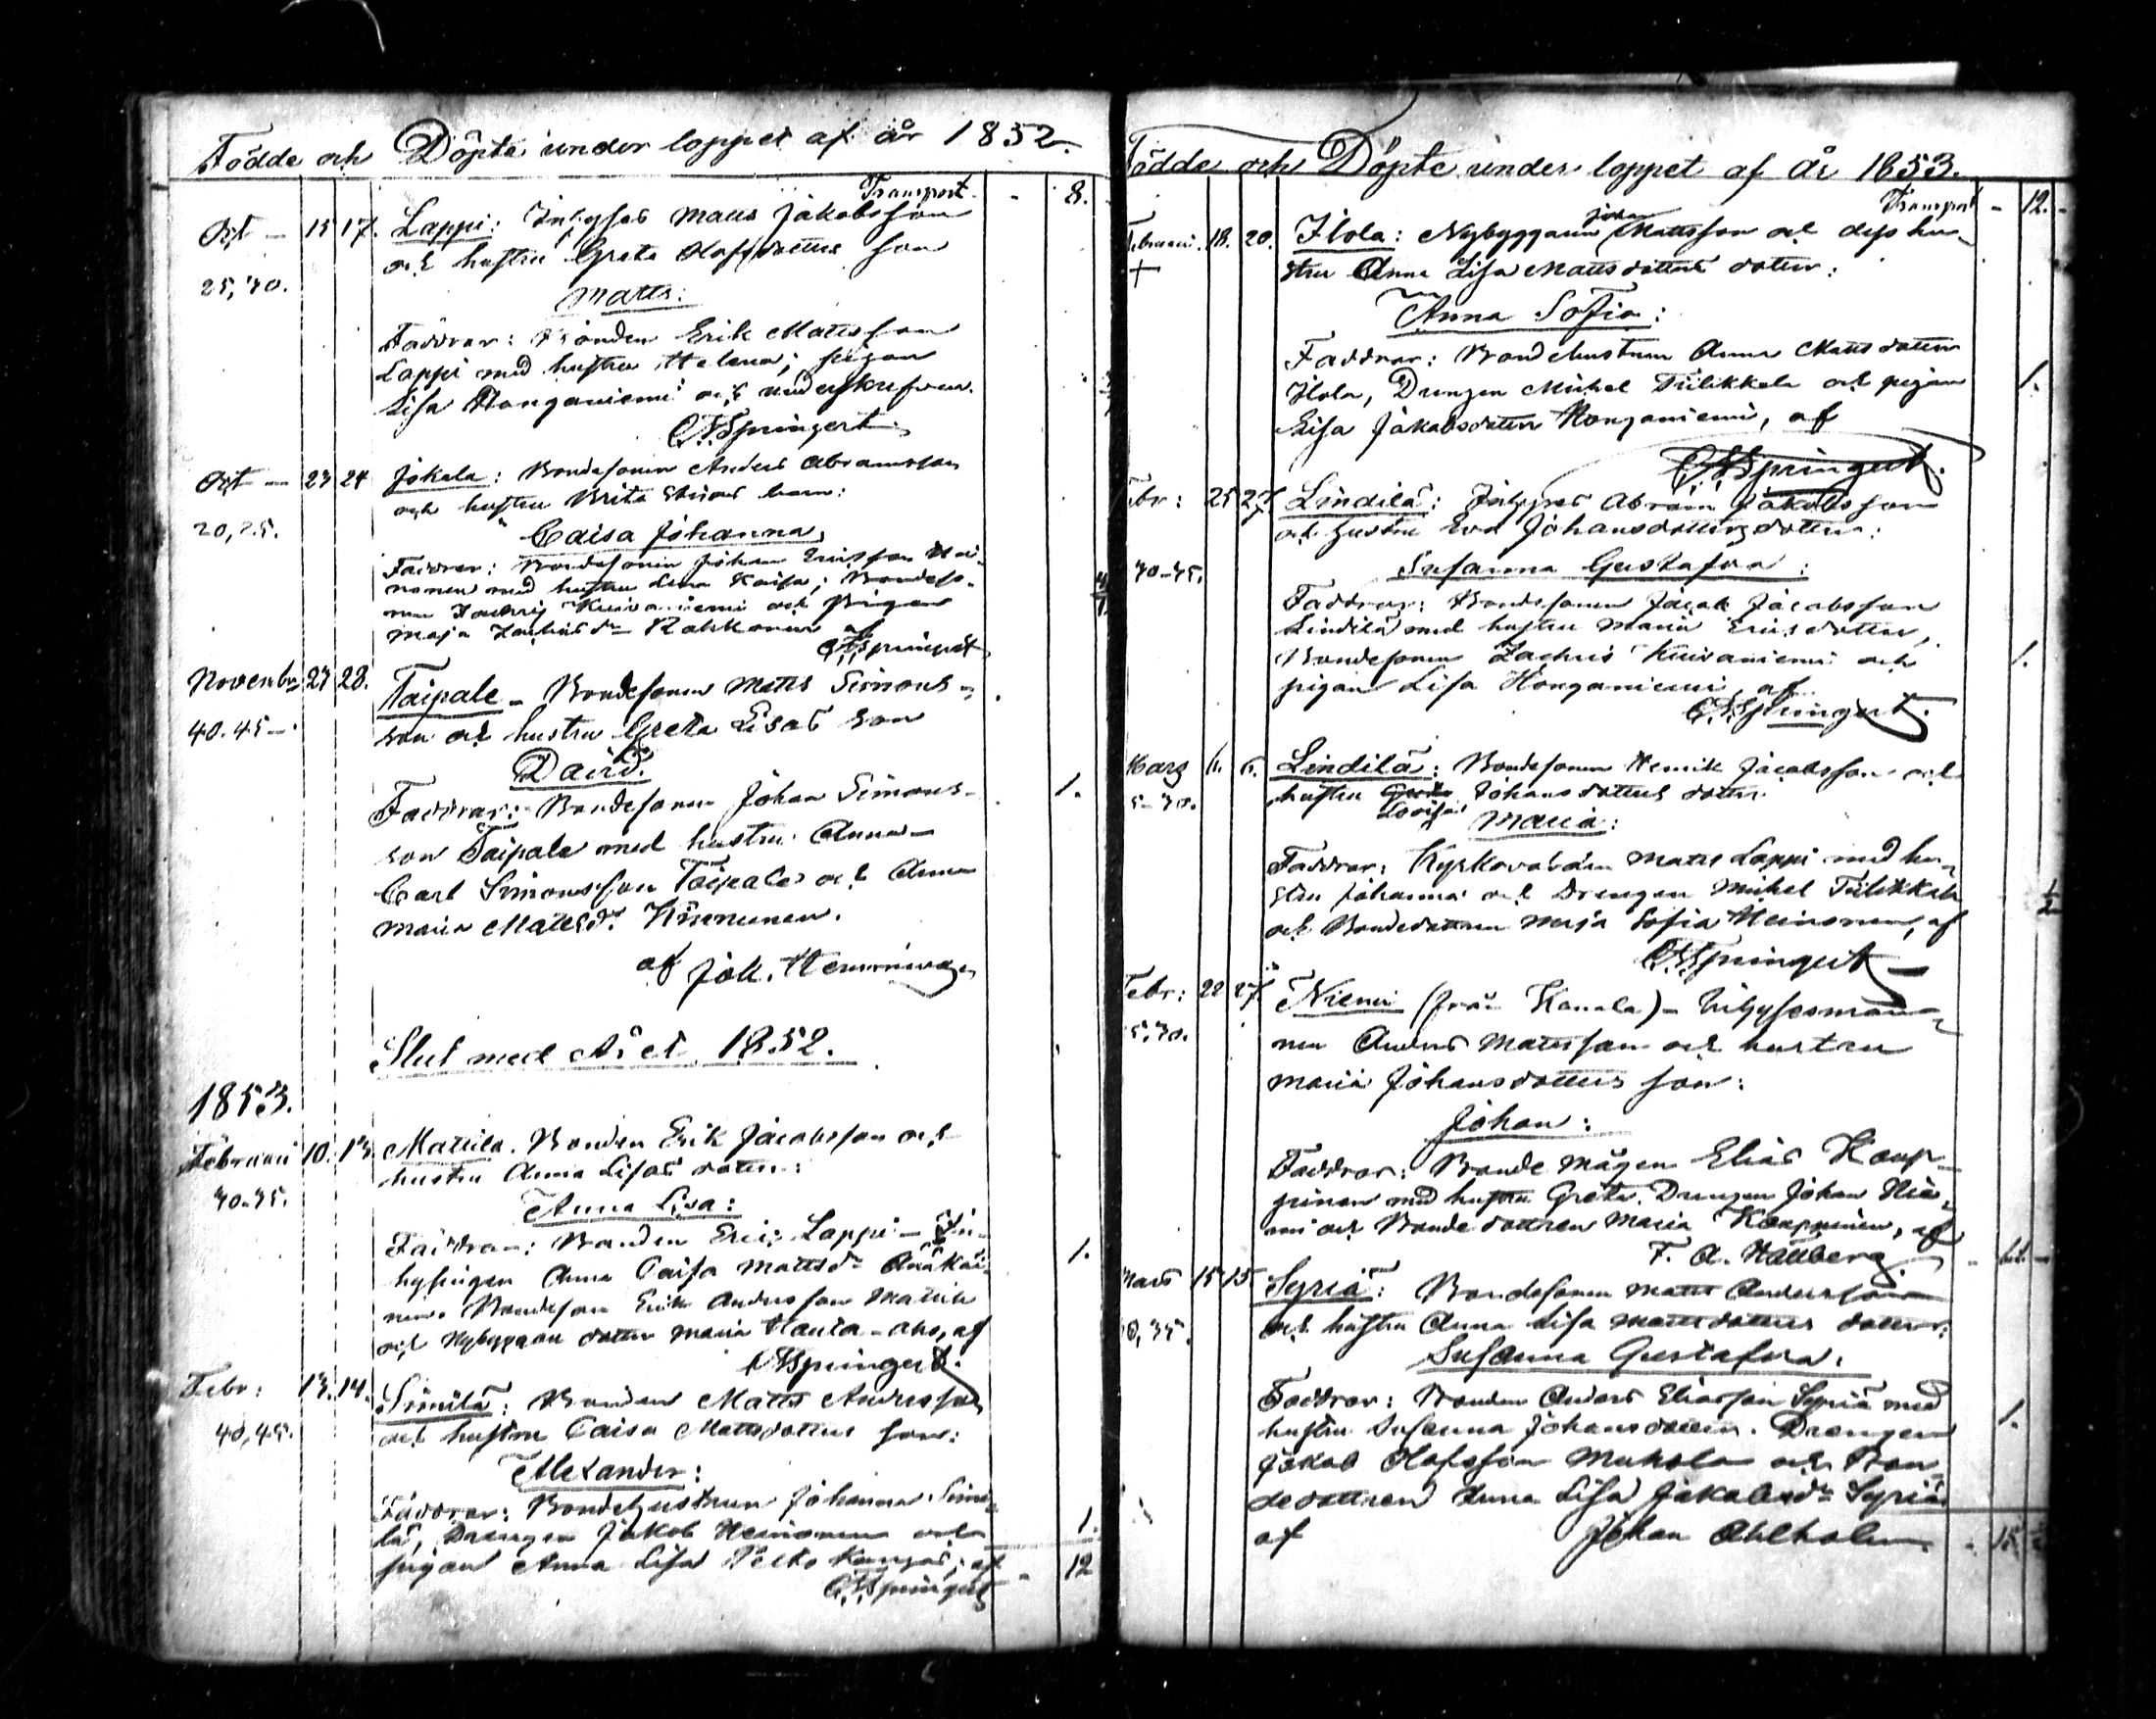 Födde och Döpte under loppet af år 1852.
Transport - 8.
Oct - 15 17. Lappi: Inhyses Matts Jakobsson
25,30. och hustru Greta Olofsdotters son
Matts:
Faddrar: Bonden Erik Mattsson
Lappi med hustru Helena; pigan
Lisa Honganiemi och underskrefven.
Springert
Oct - 23 24 Jokela: Bondesonen Anders Abramsson
20,25. och hustru Brita barn:
Caisa Johanna
Faddrar: Bondesonen Johan Ericsson Hei-
nonen med hustru Lena Kaisa; Bondeso-
nen Kuivaniemi och Pigan
Maja dr Rokkonen af
Springert
Novembr 27 28. Taipale - Bondesonen Matts Simons-
40.45 - son och hustru Greta Lisas son
David.
Faddrar: Bondesonen Johan Simons- 1.
son Taipale med hustru Anna -
Carl Simonsson Taipale och Anna
Maria Mattsdr
af Joh.
Slut med Året 1852.
1853.
Februari 10. 13. Mattila. Bonden Erik Jacobsson och
30-35. hustru Anna Lisas dotter:
Anna Lisa:
Faddrar: Bonden Eric Lappi - In- 1.
hysingen Anna Caisa Mattsdr
Bondeson Erik Andersson Mattila
och Nybyggare dotter Maria Hauta-aho, af
Springert.
Febr: 13. 14. Simila: Bonden Matts Andersson
40,45. och hustru Caisa Mattsdotters son:
Alexander:
Faddrar: Bondehustrun Johanna Simi-
lä, Drengen Jakob Heinonen och 1.
pigan Anna Lisa Kangas, af - 12
Springert
Födde och Döpte under loppet af år 1853.
Transport - 12. -
Februari. 18. 20. Ilola: Nybyggaren Johan Mattsson och dess hu-
+ stru Anna Lisa Mattsdotters dotter:
Anna Sofia:
Faddrar: Bondehustrun Anna Mattsdotter
Ilola, Drengen Michel Tiilikkala och pigan 1.
Lisa Jakobsdotter Honganiemi, af
Springert.
Febr: 25 27 Lindilä: Inhyses Abram Jakobsson
och hustru Eva Johansdotters dotter:
30-35. Susanna Gustafva:
Faddrar: Bondesonen Jacob Jacobsson
Lindilä med hustru Maria Ericsdotter,
Bondesonen Zachris Kuivaniemi och 1.
pigan Lisa Honganiemi af
Springert.
Mars 6. 6. Lindilä: Bondesonen Henrik Jacobsson och
5-30. hustru Lovisa Johansdotters dotter
Maria:
Faddrar: Kyrkovärden Matts Lappi med hu-
stru Johanna och Drengen Michel Tiilikkala 1/2
och Bondedottren Maja Sofia Heinonen, af
Springert
Febr: 22 27 Niemi (från Kanala) - Inhysesman-
5,30. nen Anders Mattsson och hustru
Maria Johansdotters son:
Johan:
Faddrar: Bonde mågen Elias Kaup-
pinen med hustru Greta. Drengen Johan Nie-
mi och Bonde dottren Maria Kauppinen, af
F. A. Hällberg
Mars 15 15 Syriä: Bondesonen Matts Andersson
35. och hustru Anna Lisa Mattsdotters dotter:
Susanna Gustafva:
Faddrar: Bonden Anders Eliasson Syriä med
hustru Susanna Johansdotter. Drengen 1.
Jakob Olofsson Muhola och Bon-
dedottren Anna Lisa Jakobsdr Syriä
af Johan Ahlholm - 15